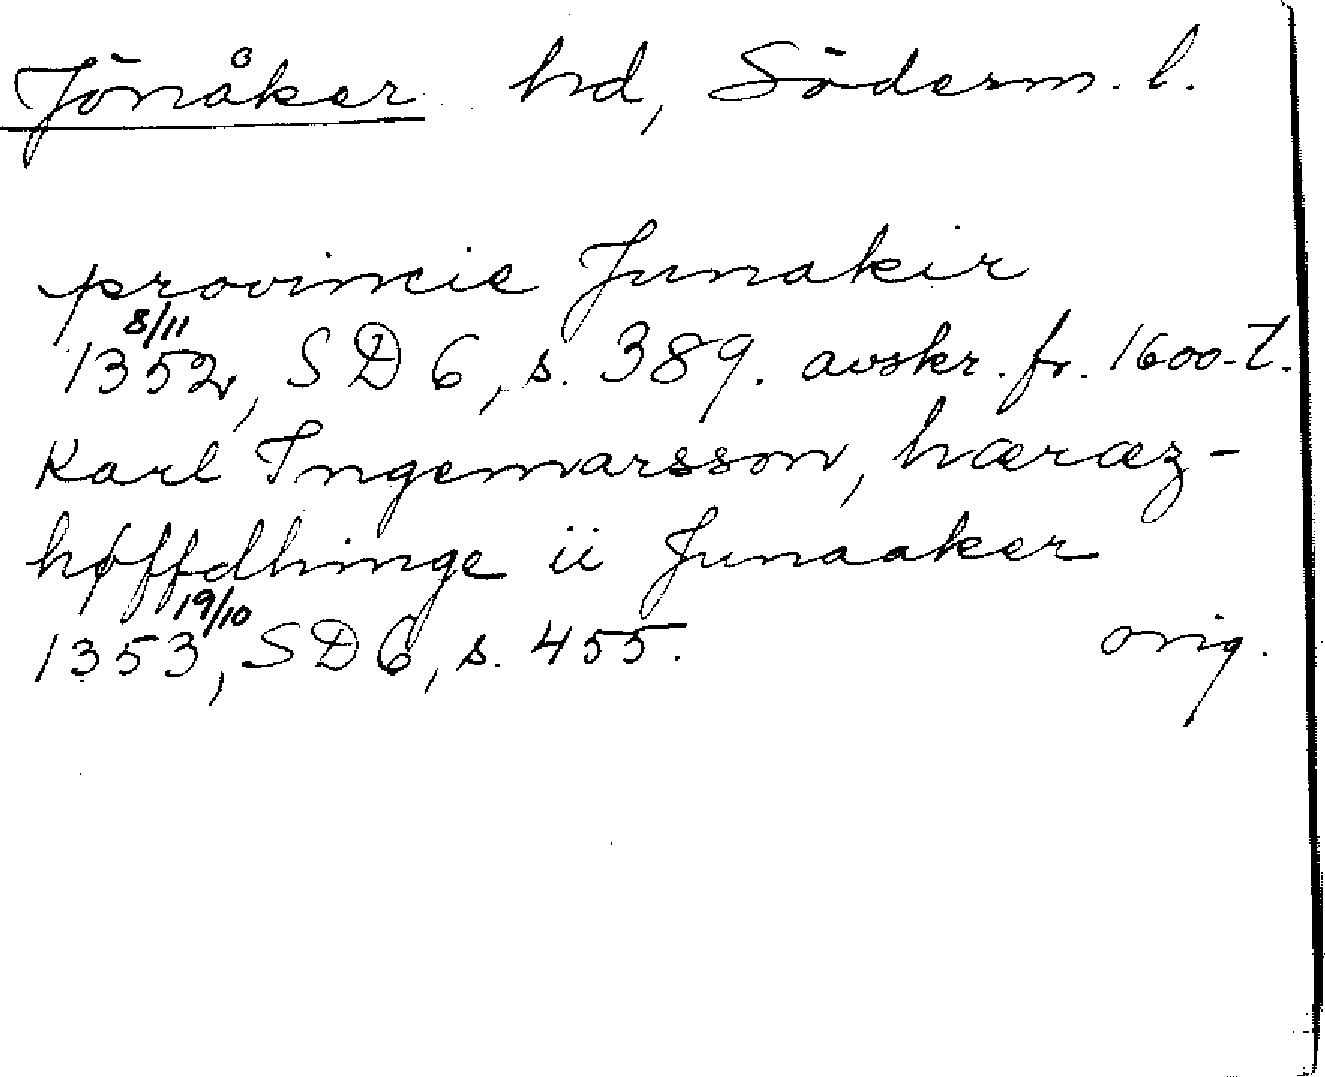 Jönåker hd, Söderm. l.
provincie Junakir
1352 8/11, SD 6, s. 389. avskr. fr. 1600-t.
Karl Ingemarsson, hæræz-
høffdhinge ii Junaaker
1353 19/10, SD 6, s. 455. orig.